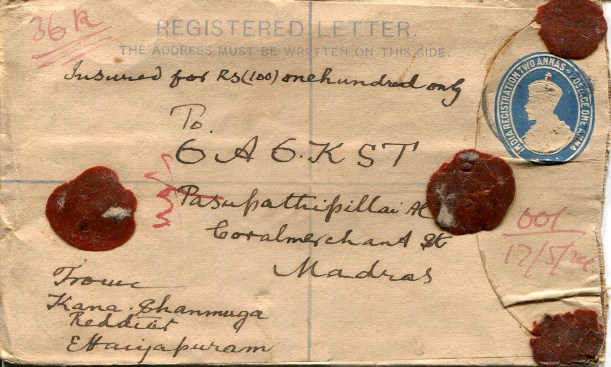 36
REGISTERED LETTER.
THE ADDRESS MUST BE WRITTEN ON THIS SIDE.
Insured for Rs(100) one hundred only
INDIA REGISTRATION TWO ANNAS POSTAGE ONE ANNA
To.
A K S T
Pasupathipillai
Coralmerchant St
Madras
17/5/
From
Kana. Shanmuga
Reddiar
Ettaiyapuram